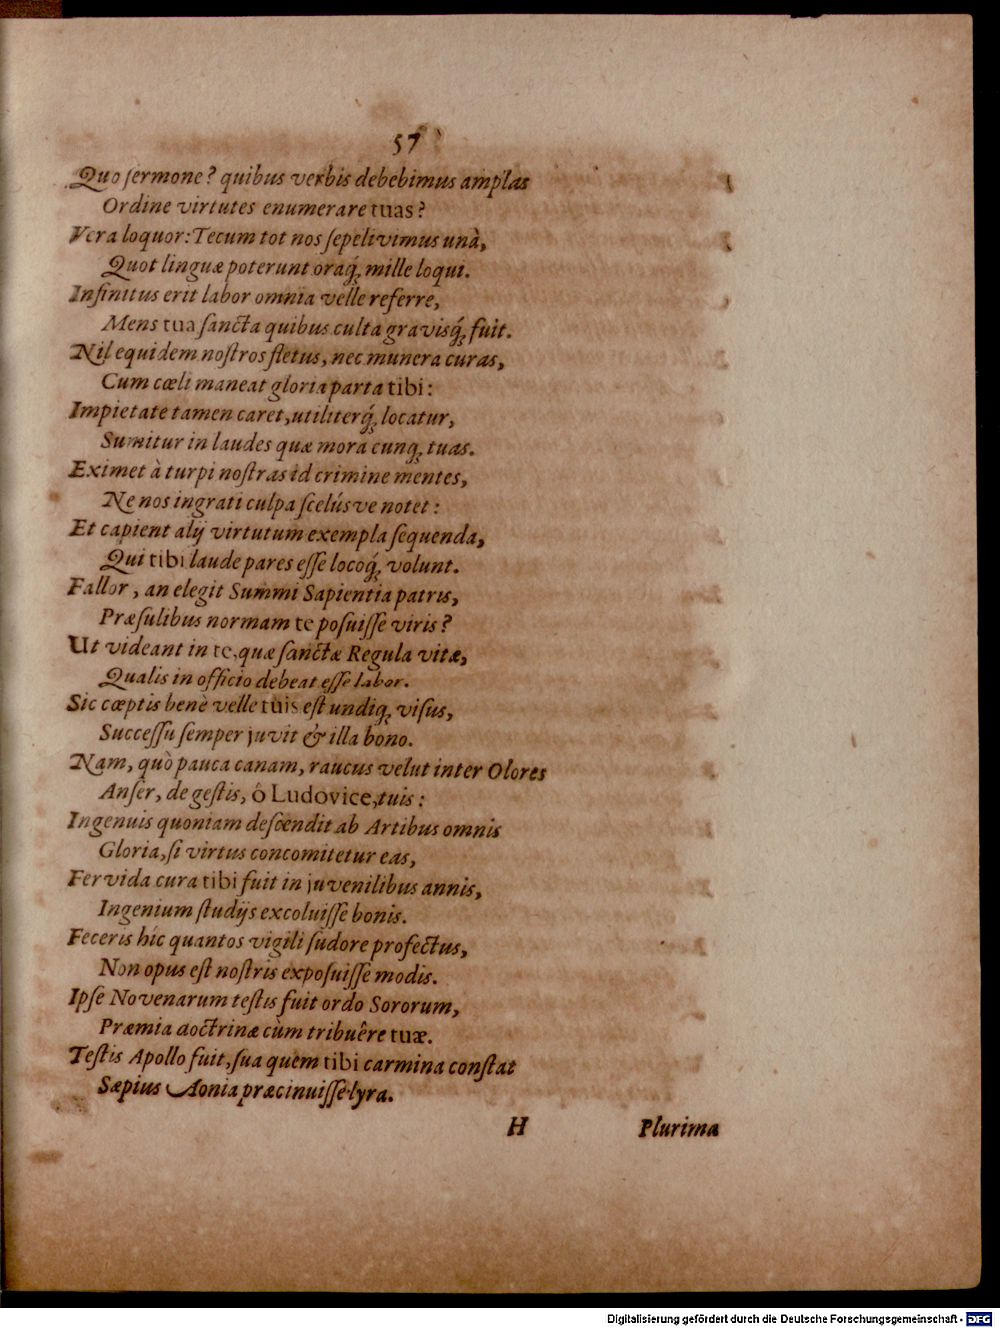 57
Quo ſermone? quibus verbis debebimus amplas
Ordine virtutes enumerare tuas?
Vera loquor: Tecum tot nos ſepelivimus unà,
Quot linguæ poterunt oraq́; mille loqui.
Infinitus erit labor omnia velle referre,
Mens tua ſancta quibus culta gravisq́; fuit.
Nil equidem noſtros fletus, nec munera curas,
Cum cœli maneat gloria parta tibi:
Impietate tamen caret, utiliterq́; locatur,
Sumitur in laudes quæ mora cunq; tuas.
Eximet à turpi noſtras id crimine mentes,
Ne nos ingrati culpa ſcelúsve notet:
Et capient alij virtutum exempla ſequenda,
Qui tibi laude pares eſſe locoq́; volunt.
Fallor, an elegit Summi Sapientia patris,
Præſulibus normam te poſuiſſe viris?
Ut videant in te, quæ ſanctæ Regula vitæ,
Qualis in officio debeat eſſe labor.
Sic cœptis benè velle tuis eſt undiq; viſus,
Succeſſu ſemper juvit & illa bono.
Nam, quò pauca canam, raucus velut inter Olores
Anſer, de geſtis, ô Ludovice, tuis:
Ingenuis quoniam deſcendit ab Artibus omnis
Gloria, ſi virtus concomitetur eas,
Fervida cura tibi fuit in juvenilibus annis,
Ingenium ſtudijs excoluiſſe bonis.
Feceris hîc quantos vigili ſudore profectus,
Non opus eſt noſtris expoſuiſſe modis.
Ipſe Novenarum teſtis fuit ordo Sororum,
Præmia doctrinæ cùm tribuêre tuæ.
Teſtis Apollo fuit, ſua quem tibi carmina conſtat
Sæpius Aonia præcinuiſſe lyra.
H Plurima
Digitalisierung gefördert durch die Deutsche Forschungsgemeinschaft - DFG